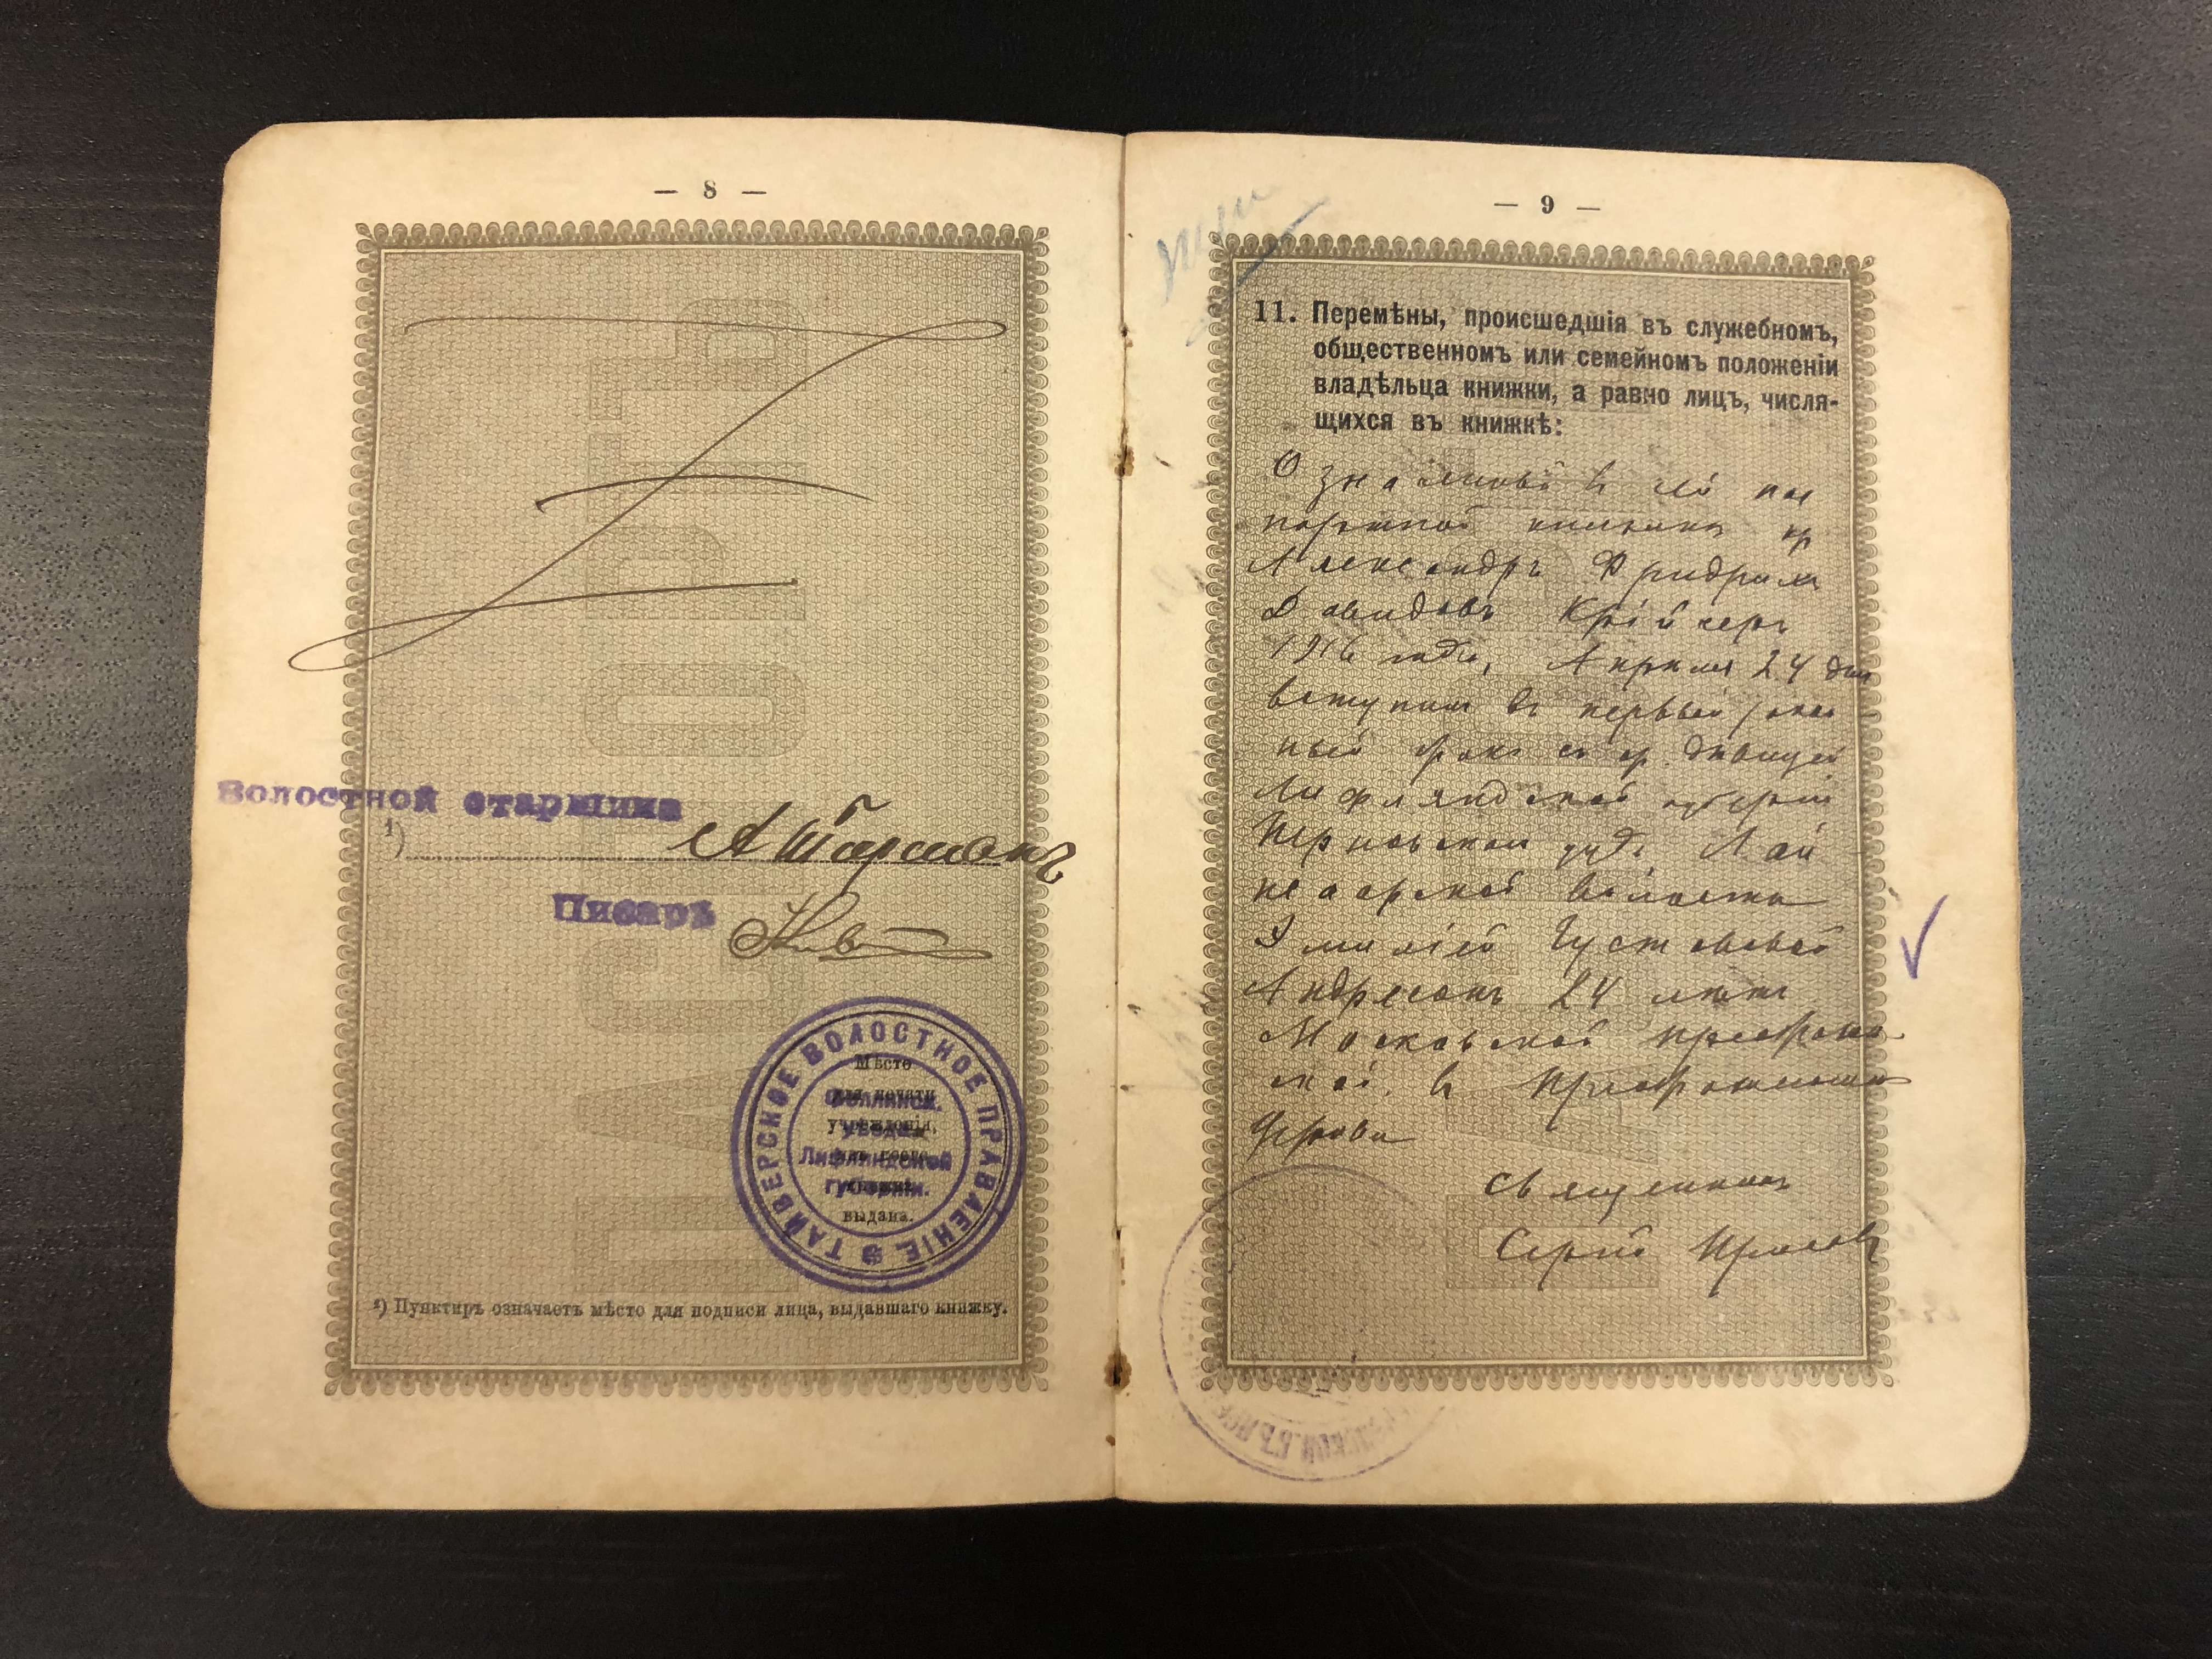 — 8 —
Волостной старшина
¹)
Писарь
ТАЙВЕРСКОЕ ВОЛОСТНОЕ ПРАВЛЕНІЕ.
Феллинск.
уѣзда,
Лифляндской
губерніи.
Мѣсто
для печати
учрежденія,
выдана.
¹) Пунктиръ означаетъ мѣсто для подписи лица, выдавшаго книжку.
— 9 —
11. Перемѣны, происшедшія въ служебномъ,
общественномъ или семейномъ положеніи
владѣльца книжки, а равно лицъ, числя-
щихся въ книжкѣ:
Означеный въ сей пас
портной книжки кр
Александръ Фридрихъ
Давидовъ
1916 года, Апрѣля 24 дня
вступилъ въ первый закон
ный бракъ съ кр. дѣвицей
Лифляндской губерніи
Перновскаго уѣзд. Лай
волости
Эмиліей Густавовой
Андресонъ 24 лѣтъ
Московской Преображен
ской въ
Церкви
Священникъ
Сергій